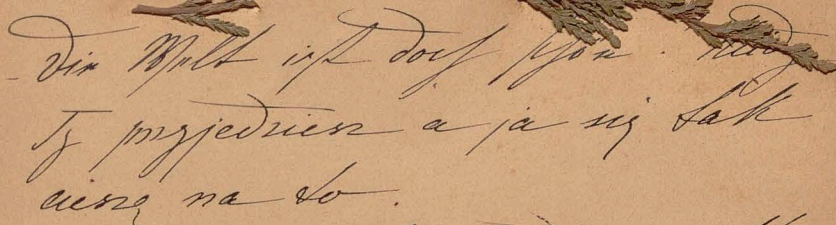 Die Welt ist doch schön. Kiedy
Ty przyjedziesz a ja się tak
cieszę na to.